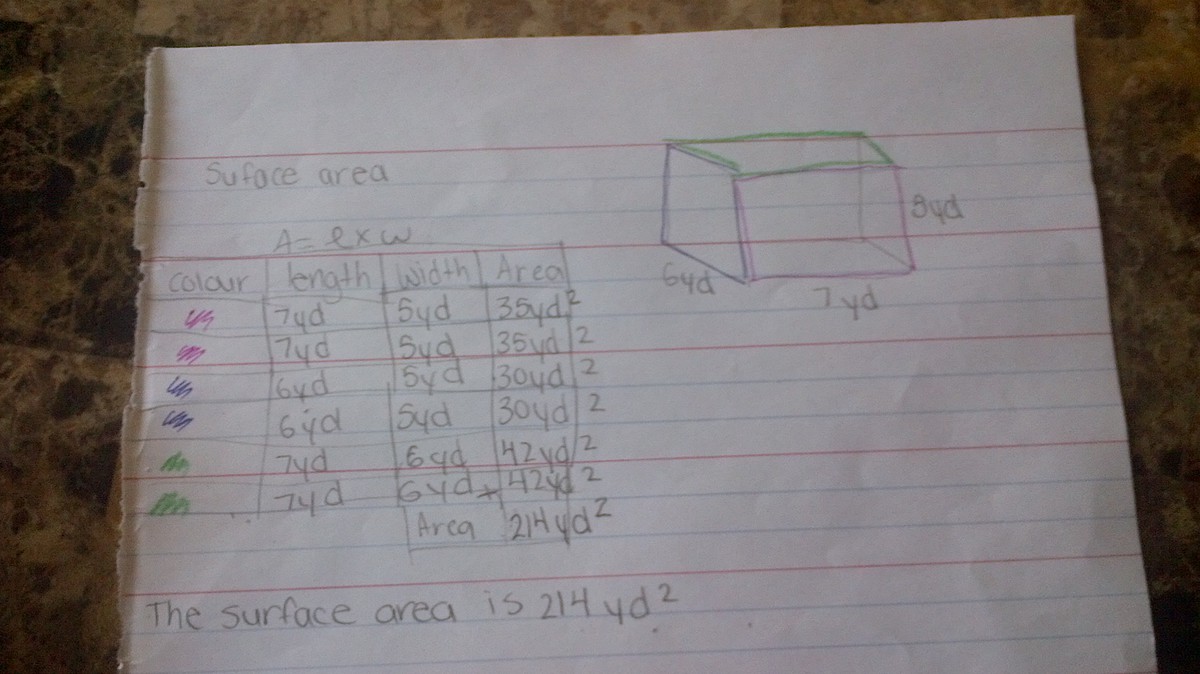 Suface area
A = l x w
colour length width Area
7yd 5yd 35yd²
7yd 5yd 35yd²
6yd 5yd 30yd²
6yd 5yd 30yd²
7yd 6yd 42yd²
7yd 6yd + 42yd²
Area 214yd²
The surface area is 214 yd²
5yd
6yd
7yd